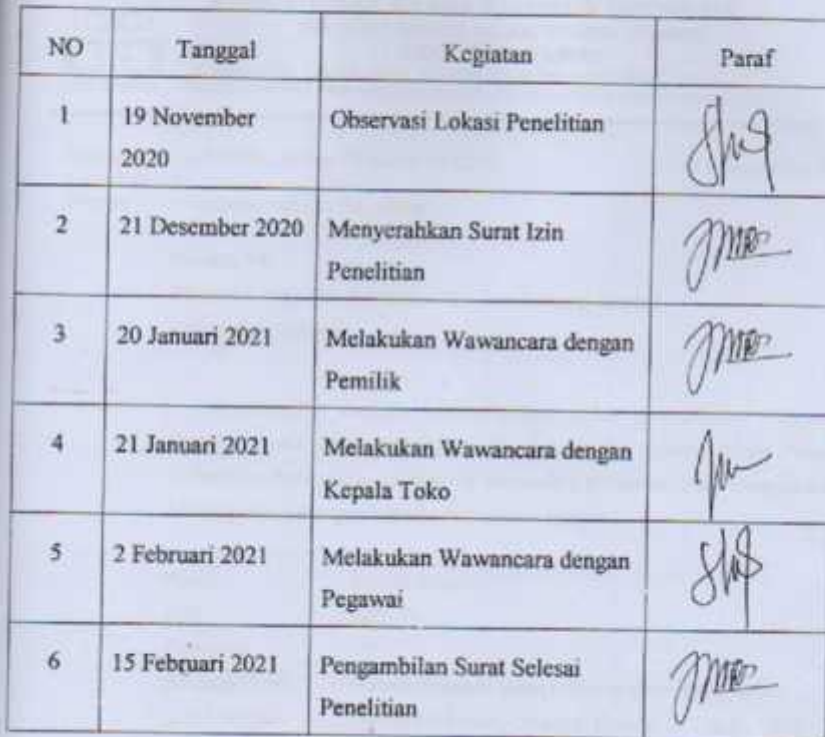 NO Tanggal Kegiatan Paraf
1 19 November Observasi Lokasi Penelitian
2020
2 21 Desember 2020 Menyerahkan Surat Izin
Penelitian
3 20 Januari 2021 Melakukan Wawancara dengan
Pemilik
4 21 Januari 2021 Melakukan Wawancara dengan
Kepala Toko
5 2 Februari 2021 Melakukan Wawancara dengan
Pegawai
6 15 Februari 2021 Pengambilan Surat Selesai
Penelitian